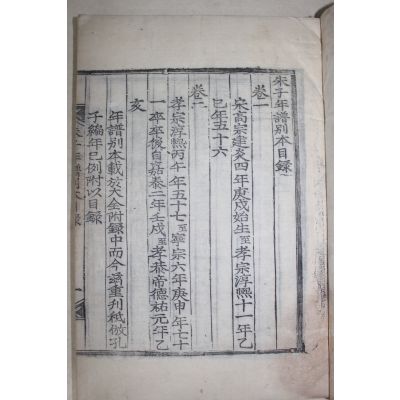 朱子年譜別本目錄
卷一
宋高宗建炎四年庚戌始生至孝宗淳熙十一年乙
巳年五十六
卷二
孝宗淳熙丙午年五十七至寧宗六年庚申年七十
一卒卒後自嘉泰二年壬戌至孝恭帝德祐元年乙
亥
年譜別本載於大全附錄中而今爲重刊秪倣孔
子編年已例附以目錄